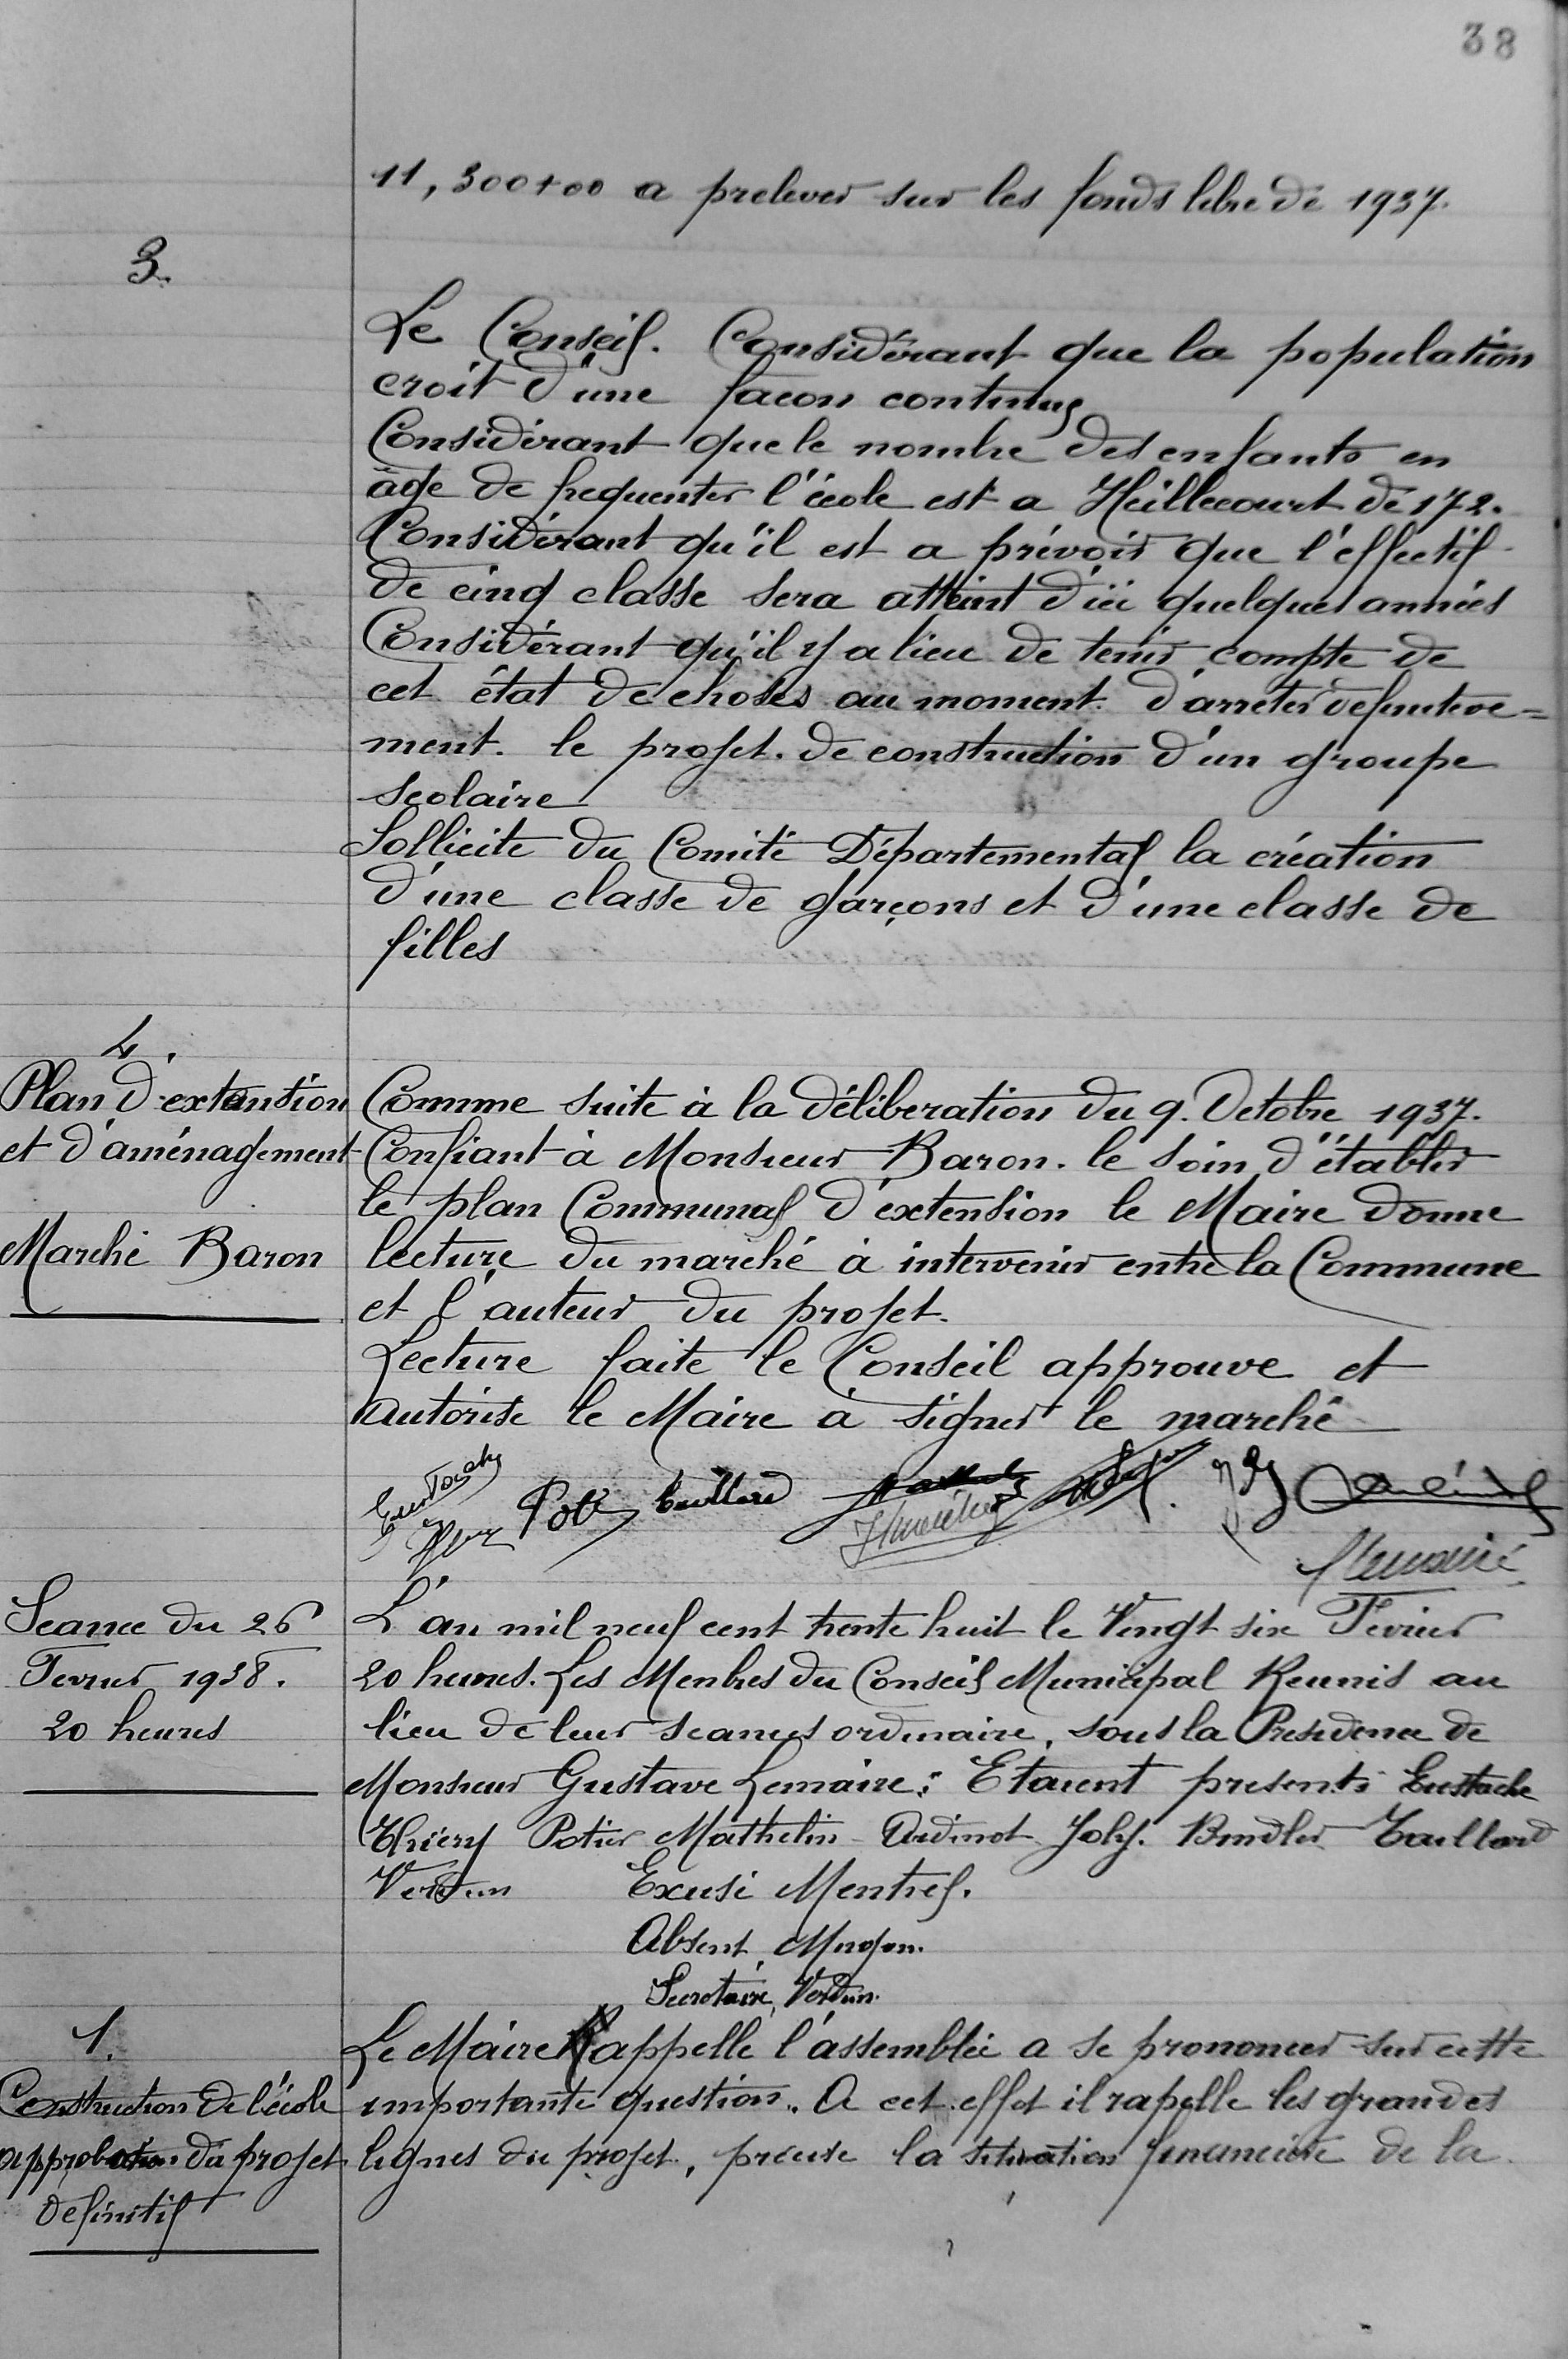 38
11,300+00 a prelever sur les fonds libre de 1937.
3.
Le Conseil. Considérant que la population
croit d'une facon continue
Considérant que le nombre des enfants en
âge de frequenter l'école est a Heillecourt de 172.
Considérant qu'il est a prévoir que l'effectif
de cinq classe sera atteint d'ici quelques années
Considérant qu'il y a lieu de tenir compte de
cet état de choses au moment d'arreter definitive=
ment. le projet. de construction d'un groupe
scolaire
Sollicite du Comité Départemental la création
d'une classe de garçons et d'une classe de
filles
4.
Plan d'extension
et d'aménagement
Marché Baron
Comme suite à la déliberation du 9. Octobre 1937.
Confiant à Monsieur Baron. le soin d'établir
le plan Communal d'extension le Maire donne
lecture du marché à intervenir entre la Commune
et l'auteur du projet.
Lecture faite le Conseil approuve et
autorise le Maire à signer le marché
Eustache
Taillard
Lemaire
Seance du 26
Fevrier 1938.
20 heures
L'an mil neuf cent trente huit le Vingt six Fevrier
20 heures. Les Membres du Conseil Municipal Reunis au
lieu de leur seances ordinaire, sous la Presidence de
Monsieur Gustave Lemaire: Etaient presents Eustache
Thiery Potier Mathelin Audinot Joly. Taillard
Verdun Excusé Mentrel.
Absent
Secretaire, Verdun.
1.
Construction de l'école
approbation du projet
definitif
Le Maire Rappelle l'assemblée a se prononcer sur cette
importante question. A cet effet il rapelle les grandes
lignes du projet, précise la situation financière de la